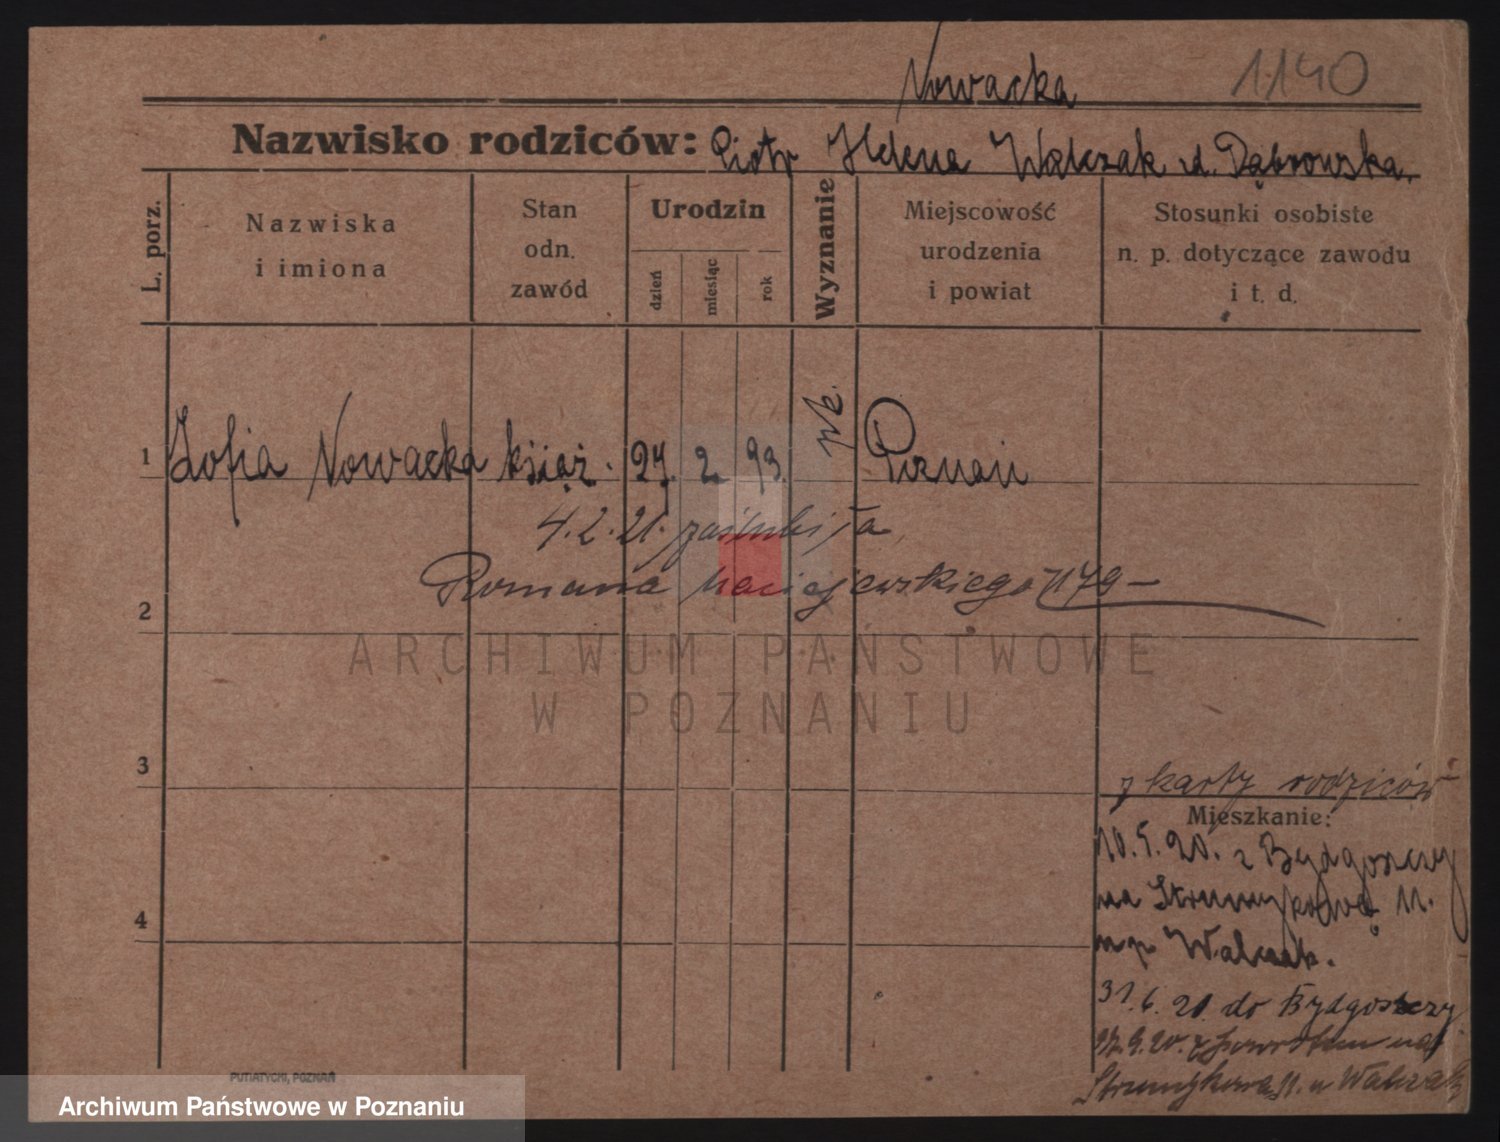 Nowacka
1140
Nazwisko rodziców: Piotr Helena Walczak d. Dąbrowska.
L. porz.
Nazwiska i imiona
Stan odn. zawód
Urodzin
dzień
miesiąc
rok
Wyznanie
Miejscowość urodzenia i powiat
Stosunki osobiste n. p. dotyczące zawodu i t. d.
1 Zofia Nowacka książ. 27. 2. 93. rk. Poznań
4.2.21. zaślubiła
2 Romana Maciejewskiego
3
4
z karty rodziców
Mieszkanie:
10.5.20. z Bydgoszczy
na Strumykową 11.
Walczak.
31.6.20. do Bydgoszczy
9.20. z powrotem na
Strumykowa 11. u Walczak
ARCHIWUM PAŃSTWOWE
W POZNANIU
PUTIATYCKI, POZNAŃ
Archiwum Państwowe w Poznaniu